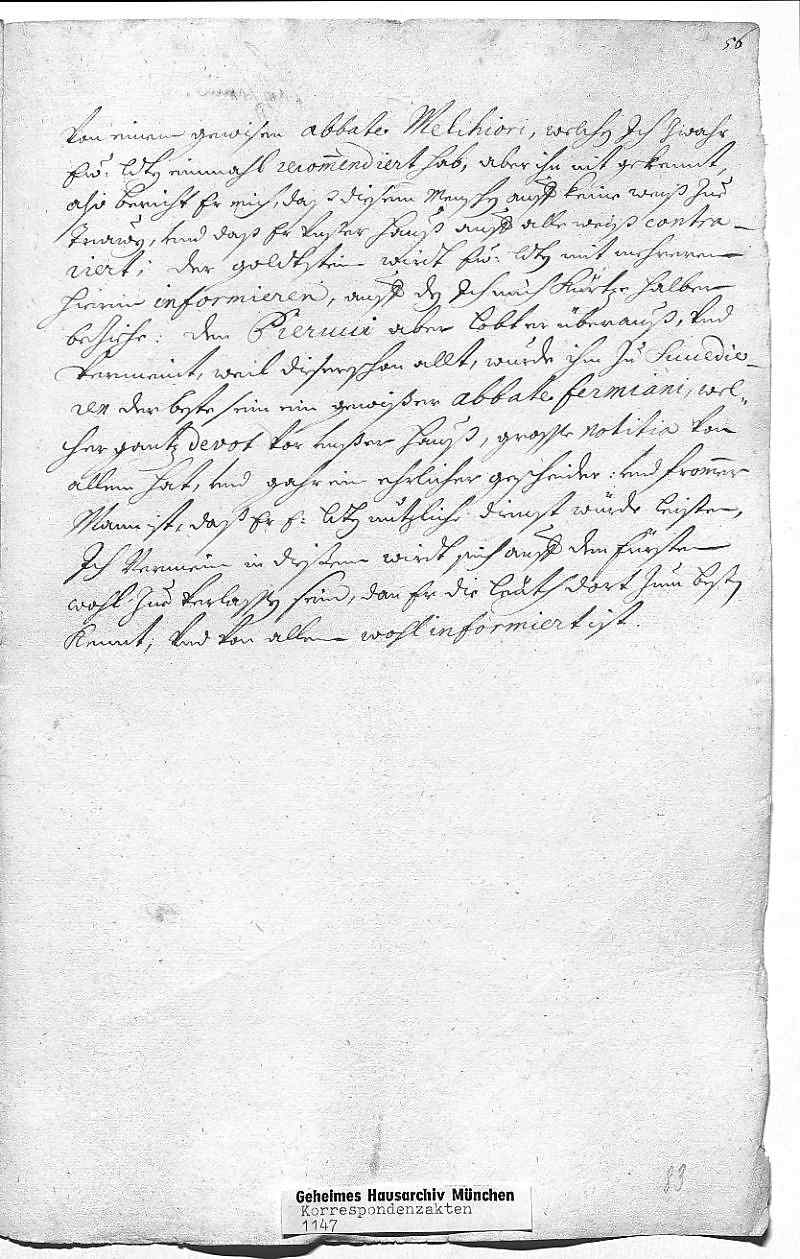 56
Von einem gewisen abbate Melchiori, welchen Ich zwahr
Ew: Ldn einmahl recommendiert hab, aber ihn nit gekennt,
also bericht Er mich, daß diesem Menschen auf keine weiß zue
trauen, und daß Er unser Hauß auf alle weiß contra-
riert; der goldtstein wirdt Ew: Ldn mit mehrerem
hierin informieren, auf den Ich mich Kürtze halber
beziehe: den Pierucci aber lobt er überauß, und
vermeint, weil dieser schon allt, wurde ihm zu succedie-
ren der beste sein ein gewißer abbate fermiani, wel-
cher gantz devot vor unßer Hauß, grosse notitia von
allem hat, und gahr ein ehrlicher gescheider: und frommer
Mann ist, daß Er E: Ldn nutzliche dienst würde leisten,
Ich vermein in dießem wirdt sich auf den fürsten
wohl zue verlassen sein, dan Er die leüth dort zum besten
kennt, und von allem wohl informiert ist.
83
Geheimes Hausarchiv München
Korrespondenzakten
1147